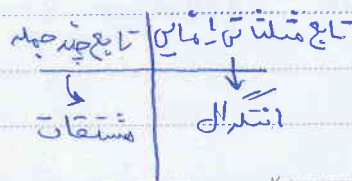 تابع مثلثاتی یا نمایی | تابع چند جمله
انتگرال | مشتقات